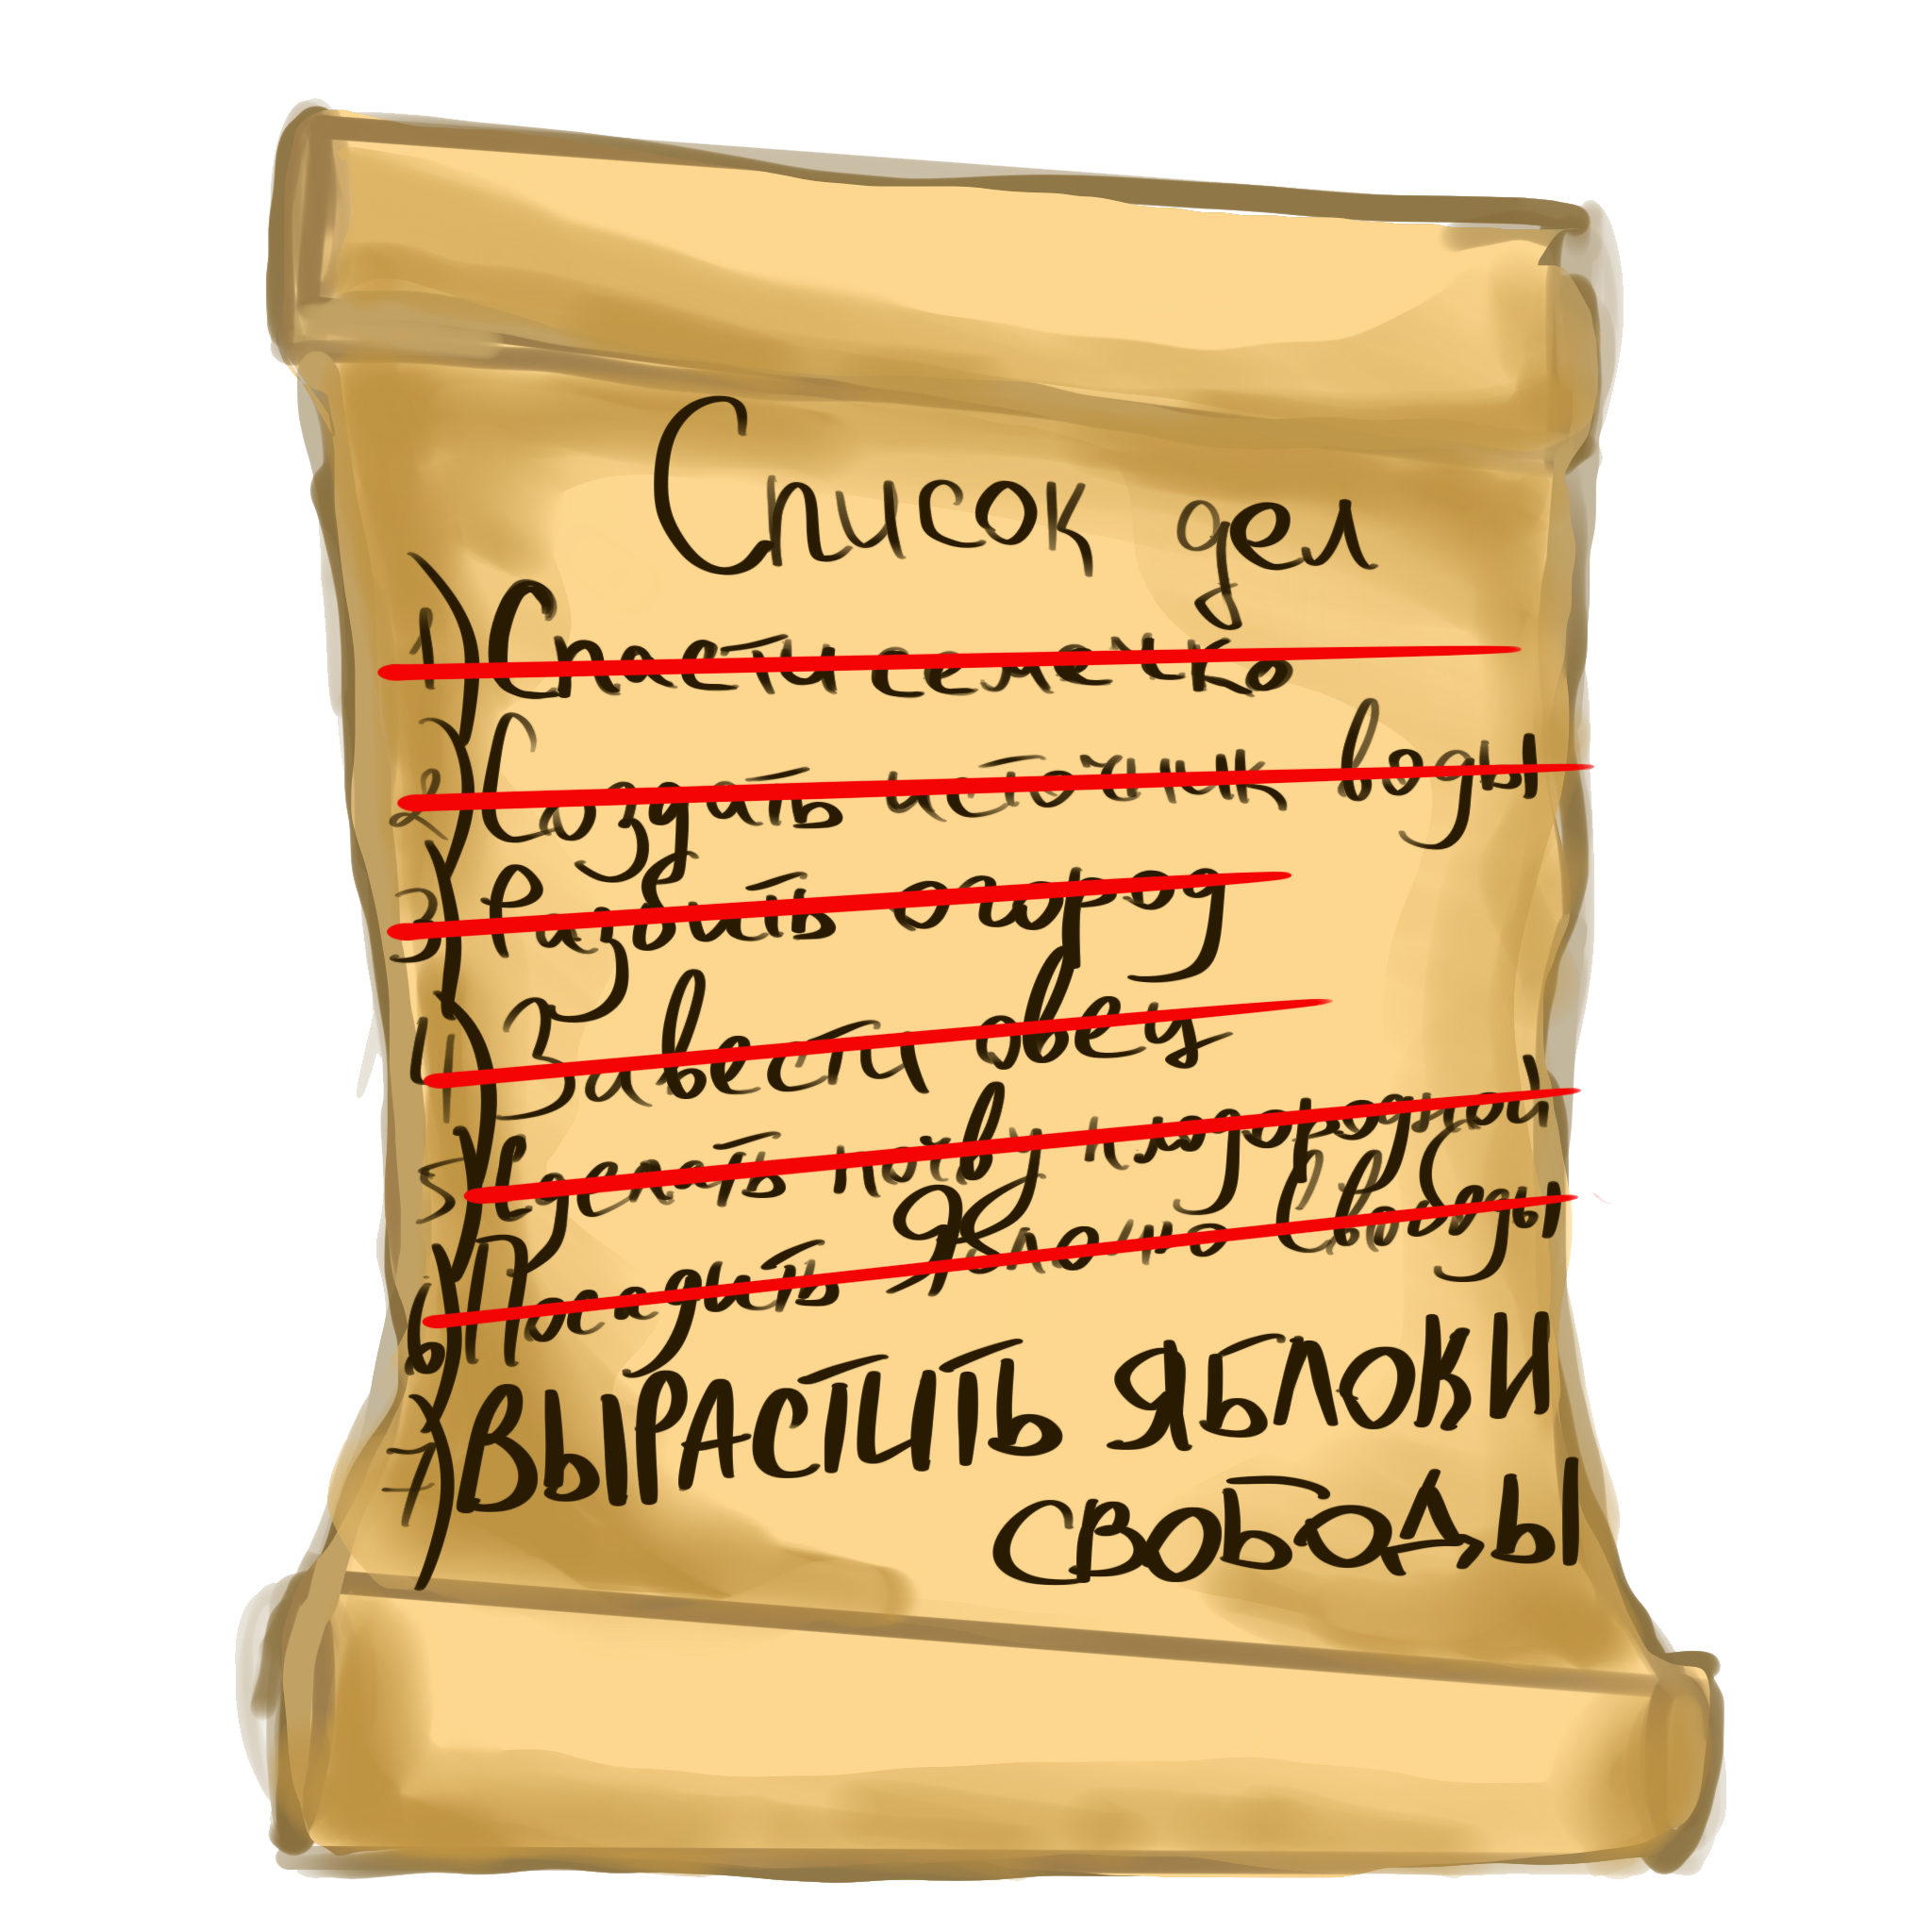 Список дел
1) Спасти семечко
2) Создать источник воды
3) Разбить огород
4) Завести овец
5) Сделать почву плодородной
6) Посадить Яблочко Свободы
7) ВЫРАСТИТЬ ЯБЛОКИ
СВОБОДЫ